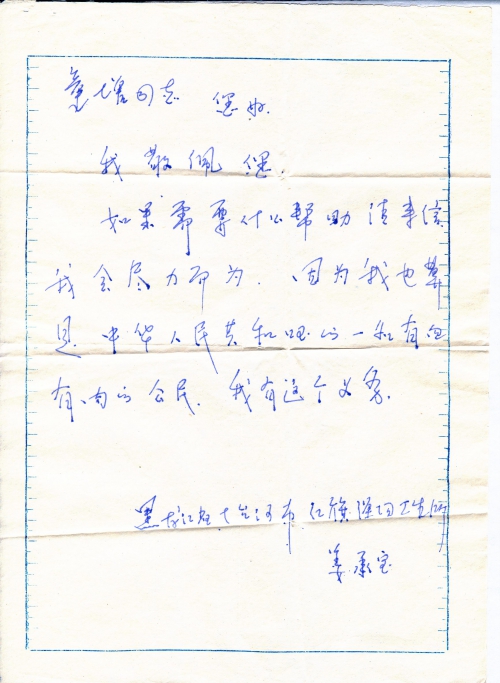 同志 您好.
我敬佩您.
如果需要什么帮助请来信
我会尽力而为. 因为我也算
是中华人民共和国的一名有血
有肉的公民. 我有这个义务.
黑龙江省七台河市红旗 卫生所
姜承宝